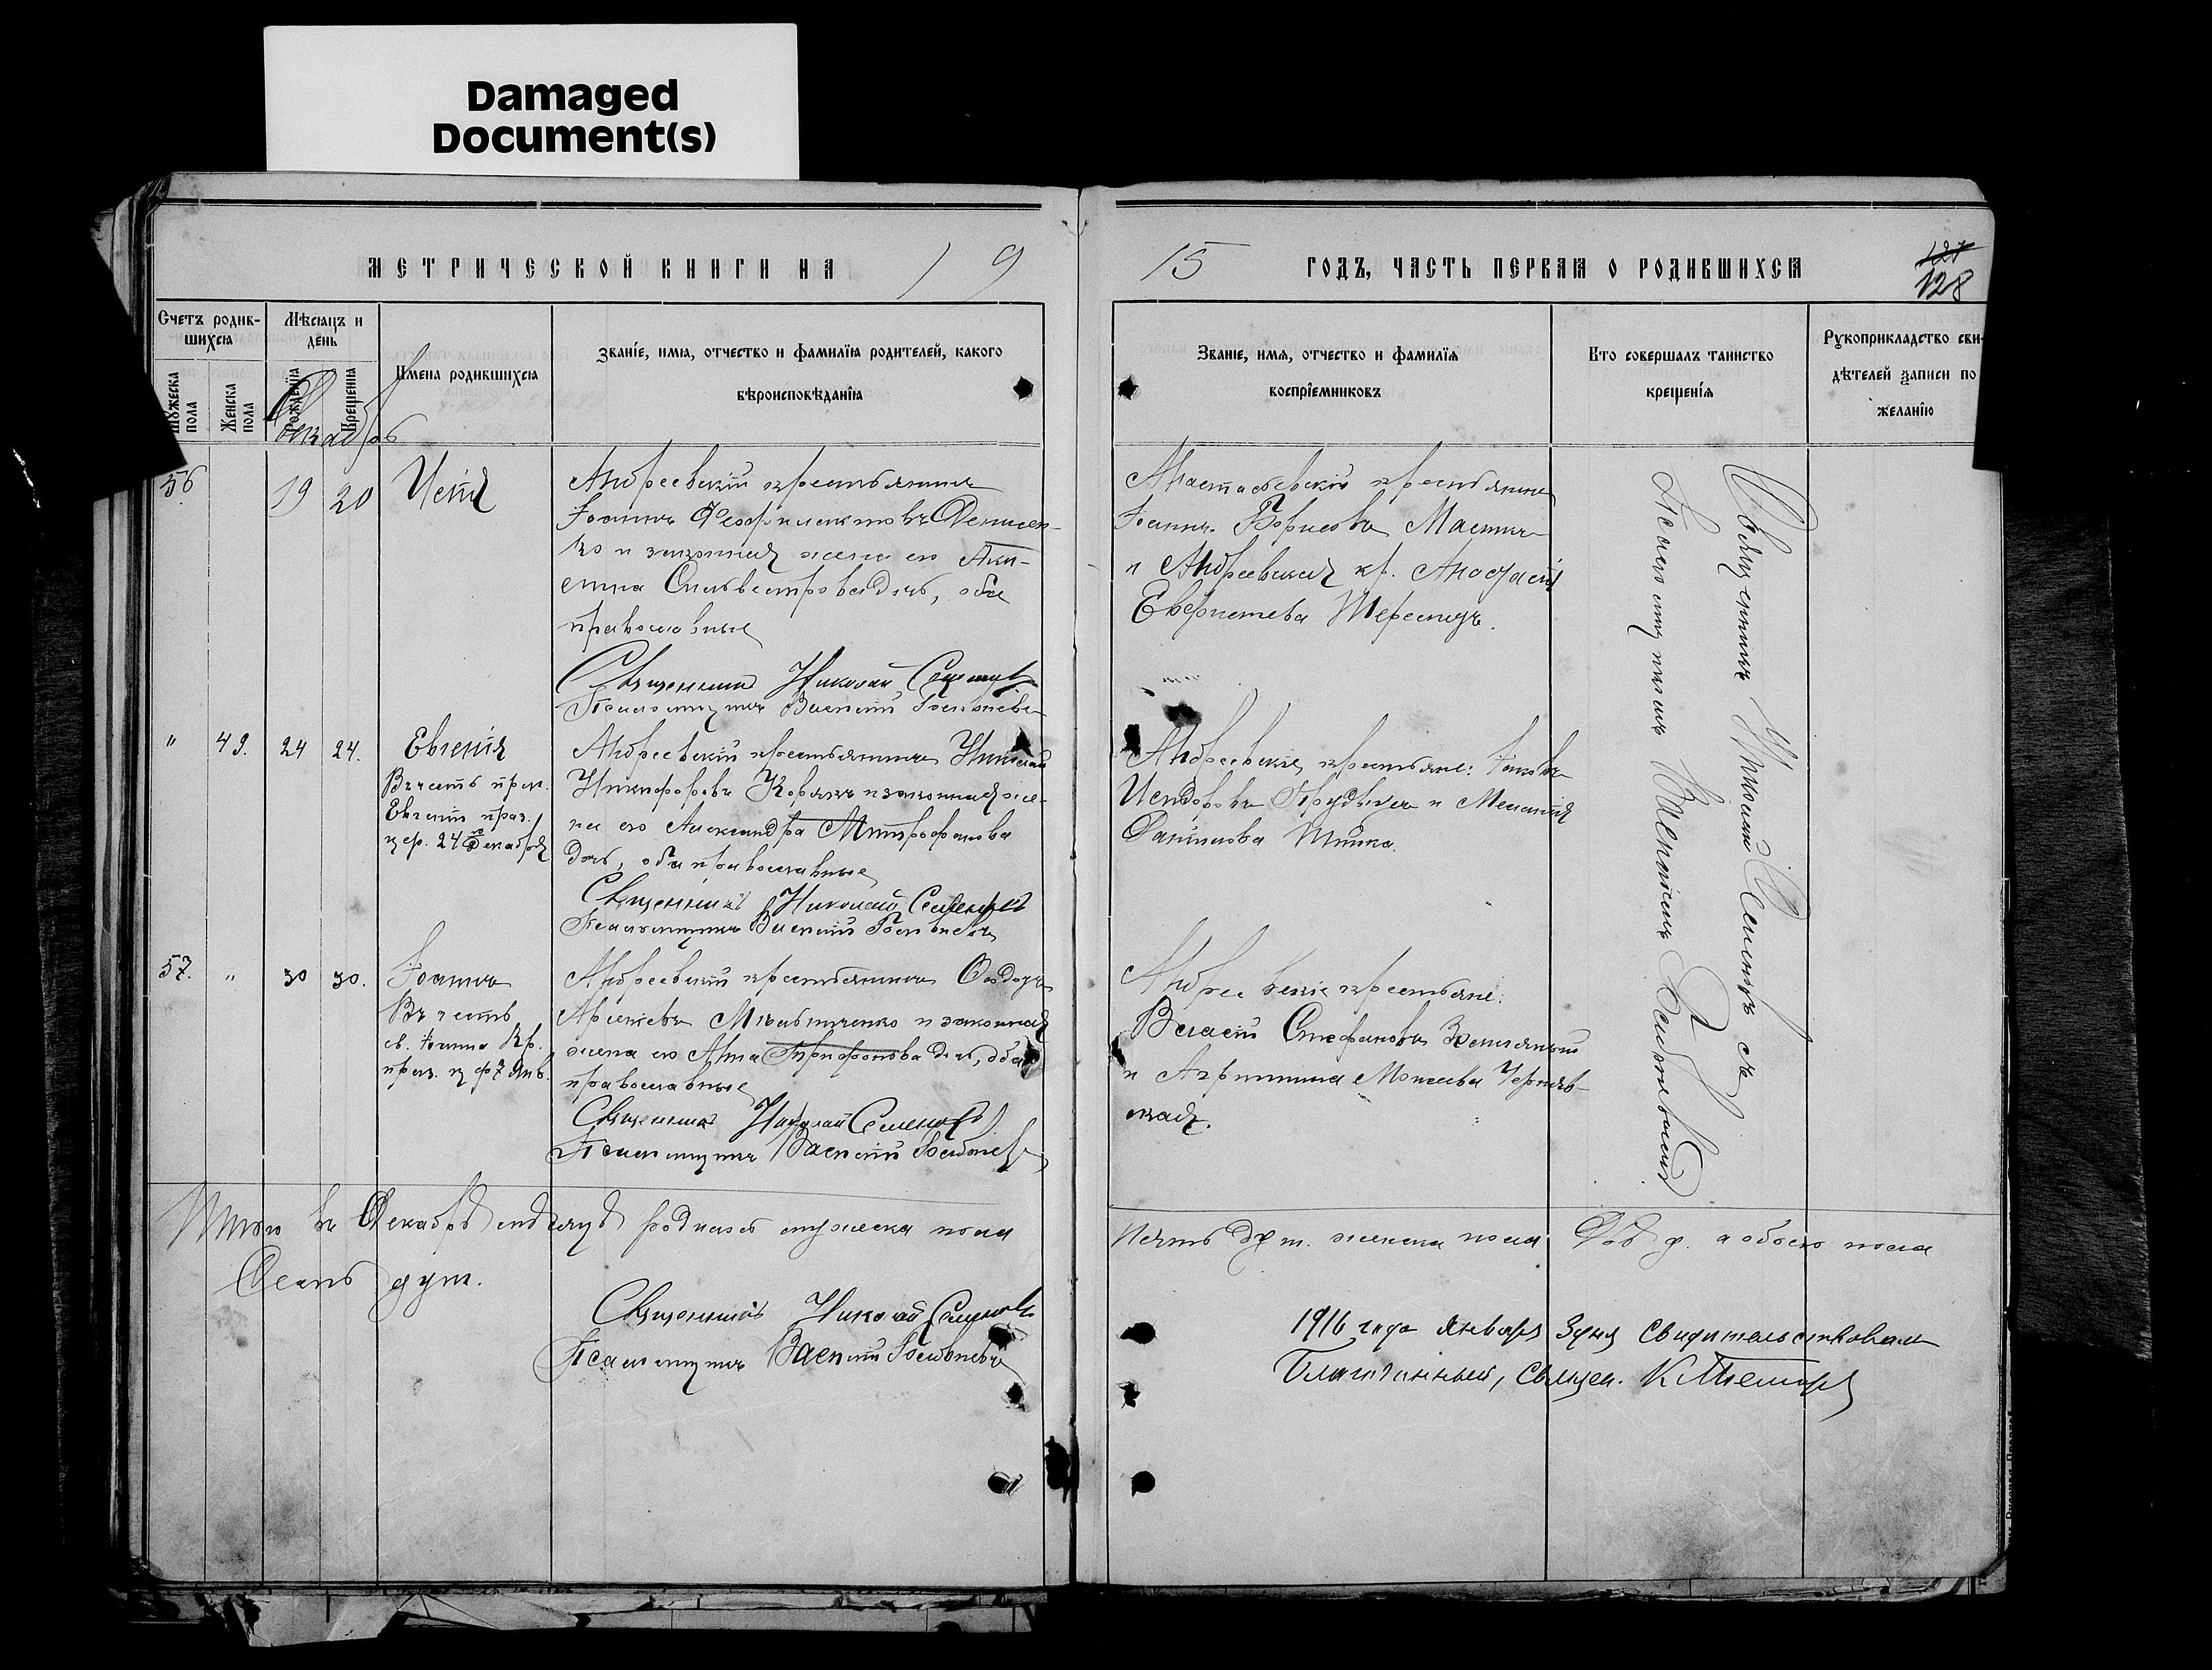 Damaged
Document(s)
МЕТРИЧЕСКОЙ КНИГИ НА 19
15 ГОДЪ, ЧАСТЬ ПЕРВАЯ О РОДИВШИХСЯ
127
128
Счетъ родив-
шихся
Мѣсяцъ и
день
Мужеска пола
Женска пола
Рожденія
Крещенія
Имена родившихся
Званіе, имя, отчество и фамилія родителей, какого
вѣроисповѣданія
Званіе, имя, отчество и фамилія
воспріемниковъ
Кто совершалъ таинство
крещенія
Рукоприкладство сви-
дѣтелей записи по
желанію
Декабрь
56
19
20
Андреевскій крестьянинъ
Іоаннъ Феофилактовъ Денисен-
ко и законная жена его
Сильвестрова дочь, оба
православные
Священникъ Николай Семеновъ
Псаломщикъ Василій
крестьянинъ
Іоаннъ Борисовъ
и Андреевская кр. Анастасія
"
49.
24
24.
Евгенія
Въ честь преп.
Евгеніи праз.
цер. 24 Декабря
Андреевскій крестьянинъ Николай
Никифоровъ Корякъ и законная же-
на его Александра Митрофанова
дочь, оба православные
Священникъ Николай Семеновъ
Псаломщикъ Василій
Андреевскіе крестьяне: Іаковъ
Исидоровъ и Меланія
Даніилова
57.
"
30
30.
Іоаннъ
Въ честь
св. Іоанна Кр.
праз. ц. 7 Янв.
Андреевскій крестьянинъ Ѳеодоръ
Арсеніевъ и законная
жена его Анна Трифонова дочь, оба
православные
Священникъ Николай Семеновъ
Псаломщикъ Василій
Андреевскіе крестьяне:
Власій Стефановъ
и Агриппина Моисеева Черняв-
ская.
Священникъ Николай Семеновъ съ
Псаломщикомъ Василіемъ
Итого въ Декабрѣ мѣсяцѣ родилось мужеска пола
Пять дѣт. женска пола Двѣ д. а обоего пола
Семь дѣт.
Священникъ Николай Семеновъ
Псаломщикъ Василій
1916 года января 3 дня свидѣтельствовалъ
Благочинный, Священ. К.